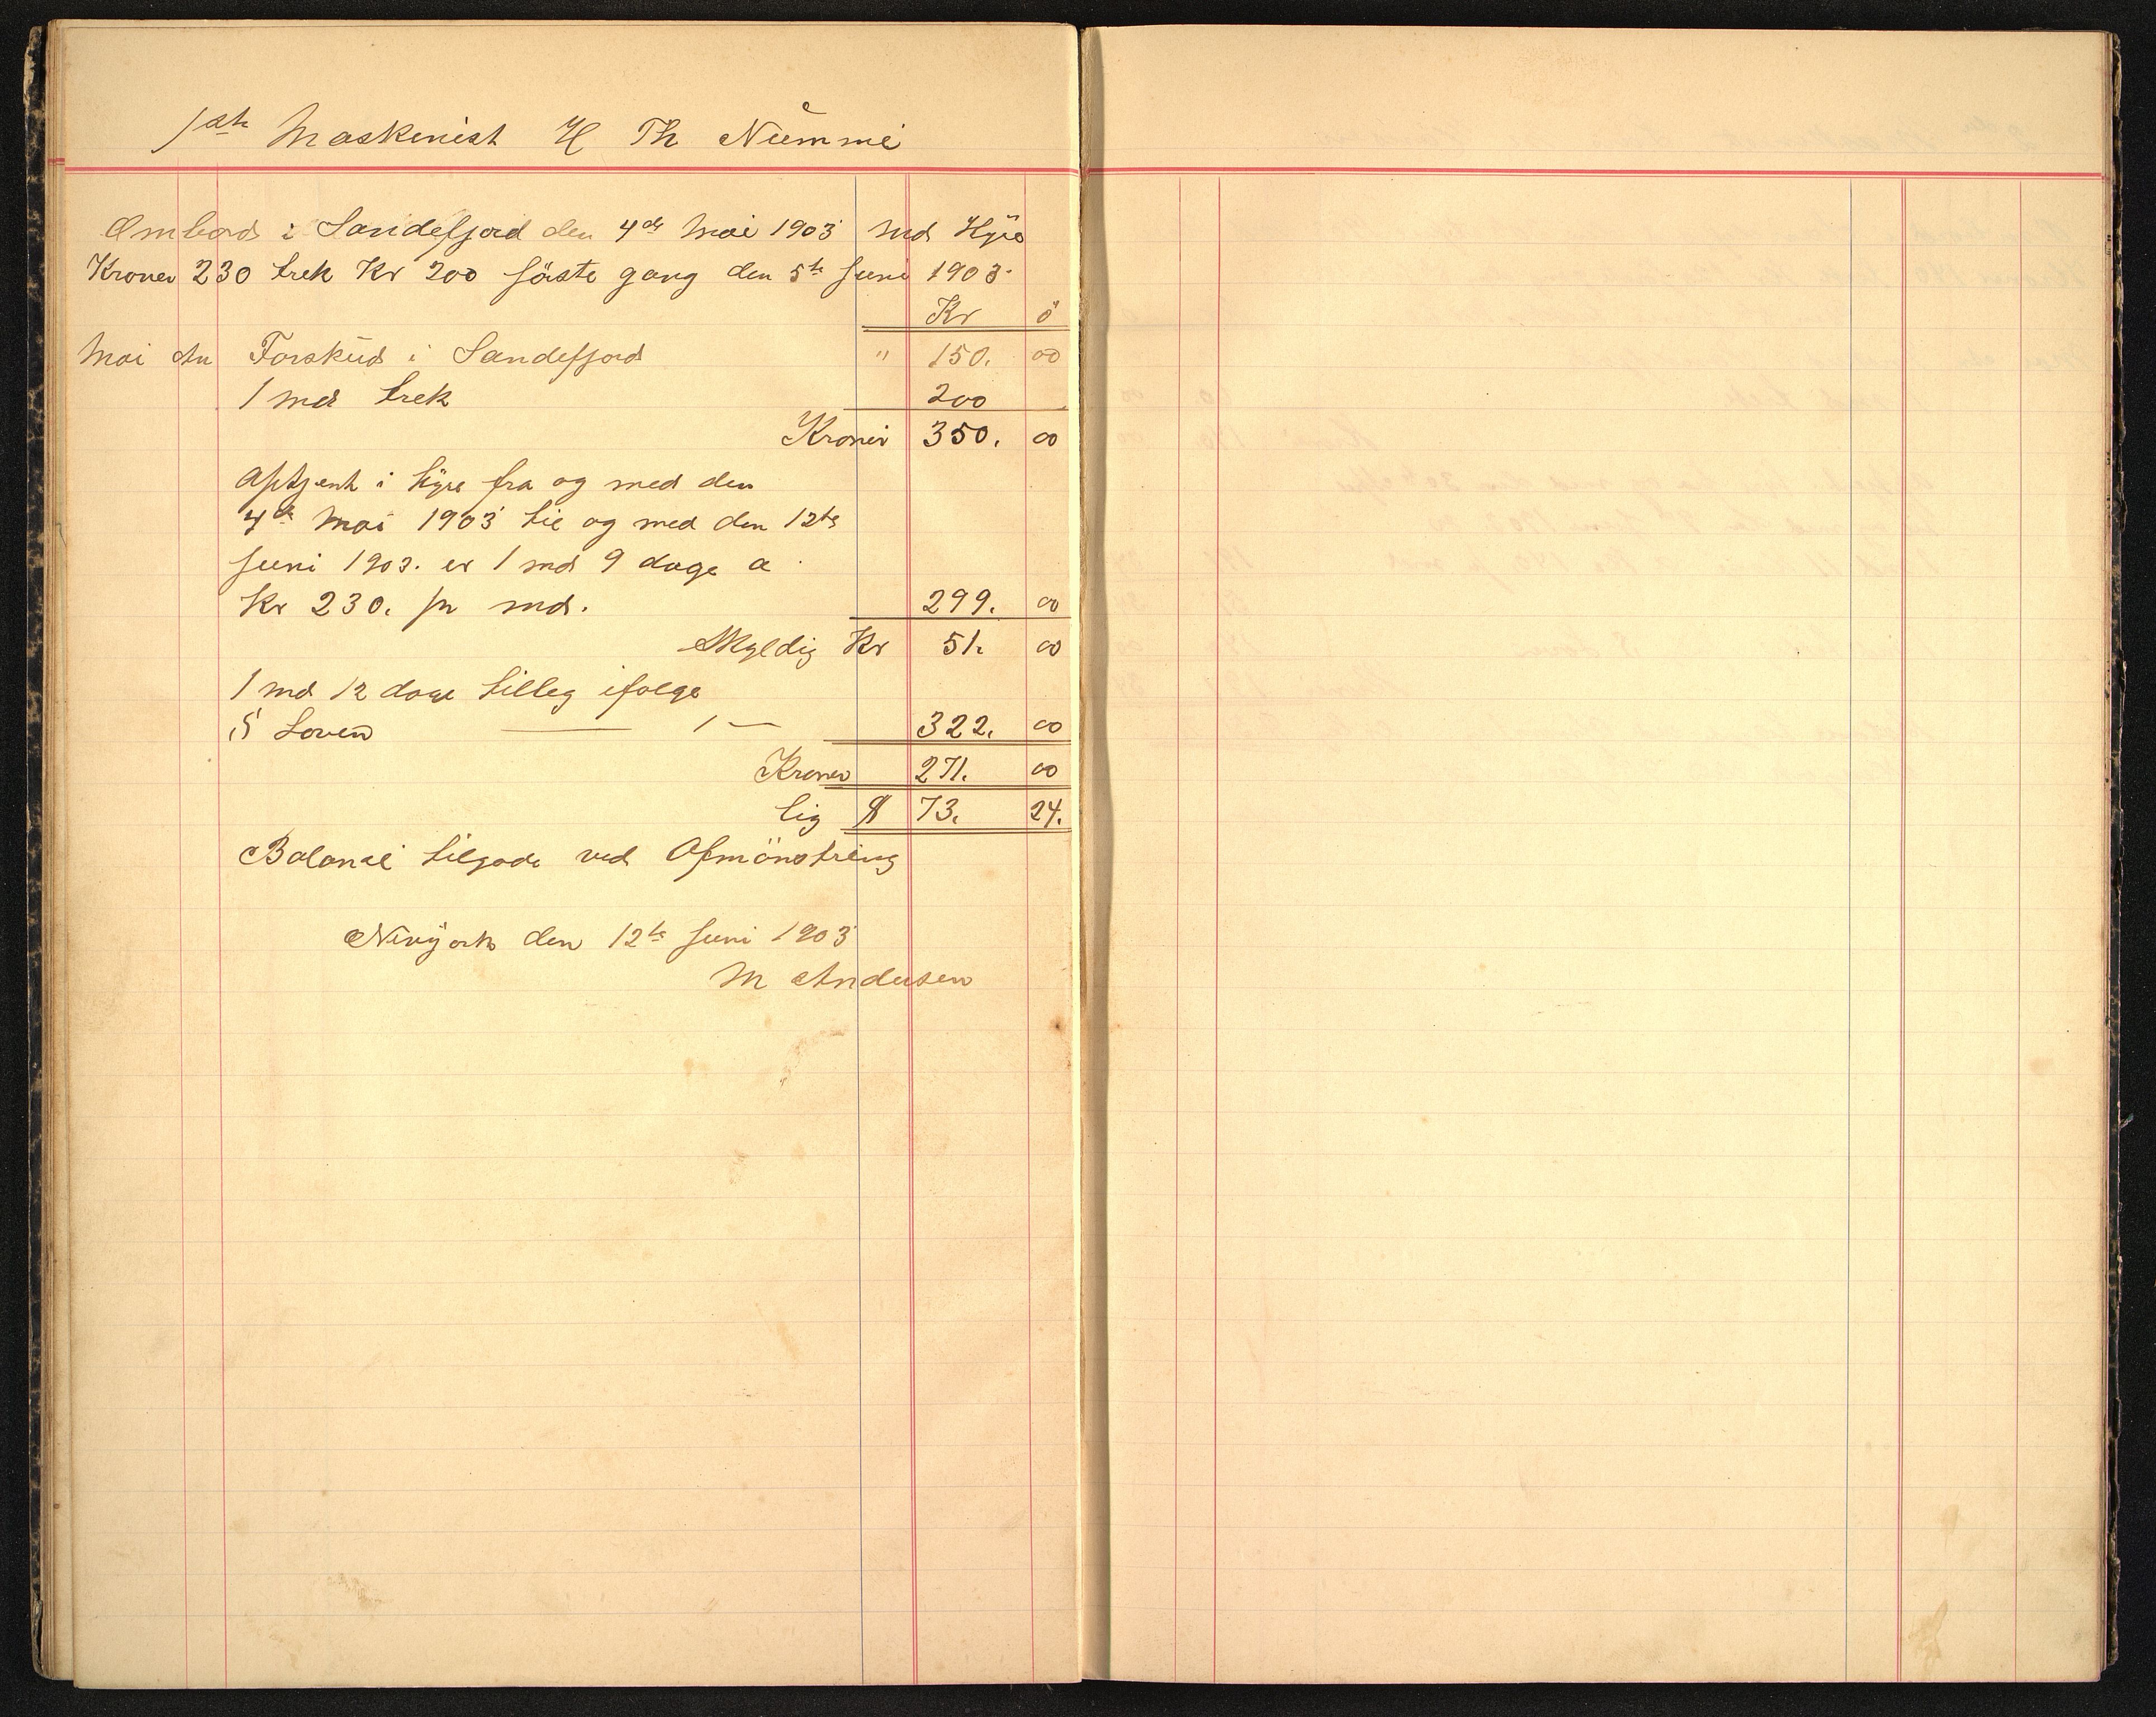 1ste Maskinist H Th Nümmi
Ombord i Sandefjord den 4de Mai 1903 Md Hÿre
Kroner 230 trek Kr 200 förste gang den 5te Juni 1903.
Kr ö
Mai An Forskud i Sandefjord " 150. 00
1 md trek 200
Kroner 350. 00
Aftjent i hÿre fra og med den
4de Mai 1903 til og med den 12te
Juni 1903. er 1 md 9 dage a
Kr 230. pr md. 299. 00
Skyldig Kr 51. 00
1 md 12 dage tilleg ifølge
§ Loven — 1 — 322. 00
Kroner 271. 00
lig $ 73. 24.
Balance tilgode ved Afmönstring
Newyork den 12te Juni 1903
M Andersen